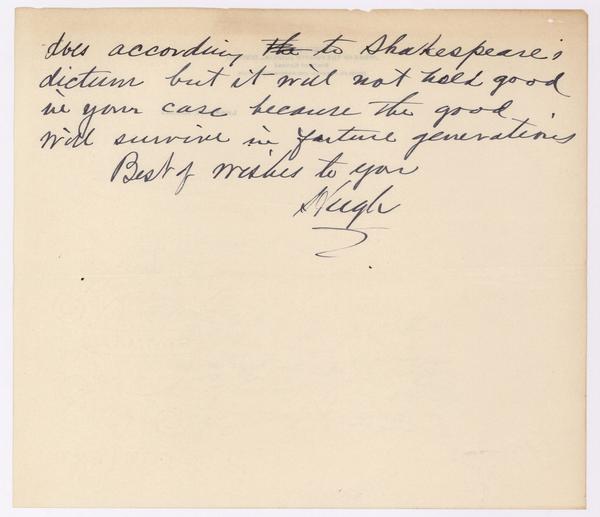 does according the to Shakespeare's
dictum but it will not hold good
in your case because the good
will survive in future generations
Best of wishes to you
Hugh